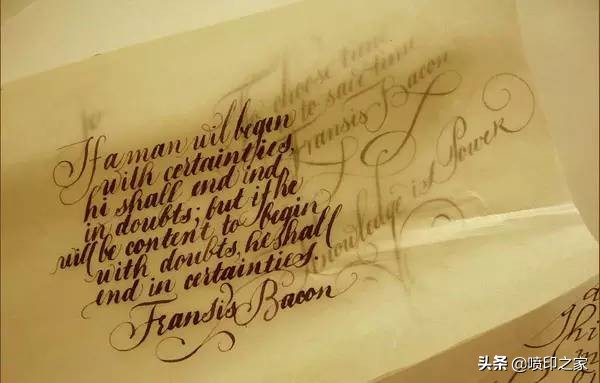 If a man wil begin
with certainties,
hi shall end ind
in doubts; but if he
will be content to begin
with doubts, he shall
end in certainties.
Fransis Bacon
To choose time
to save time
Fransis Bacon
Knowledge is Power
头条 @喷印之家